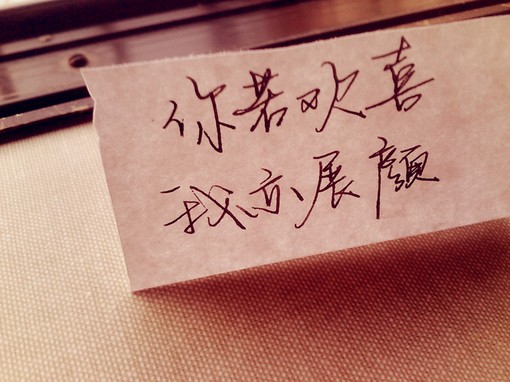 你若欢喜
我亦展顏